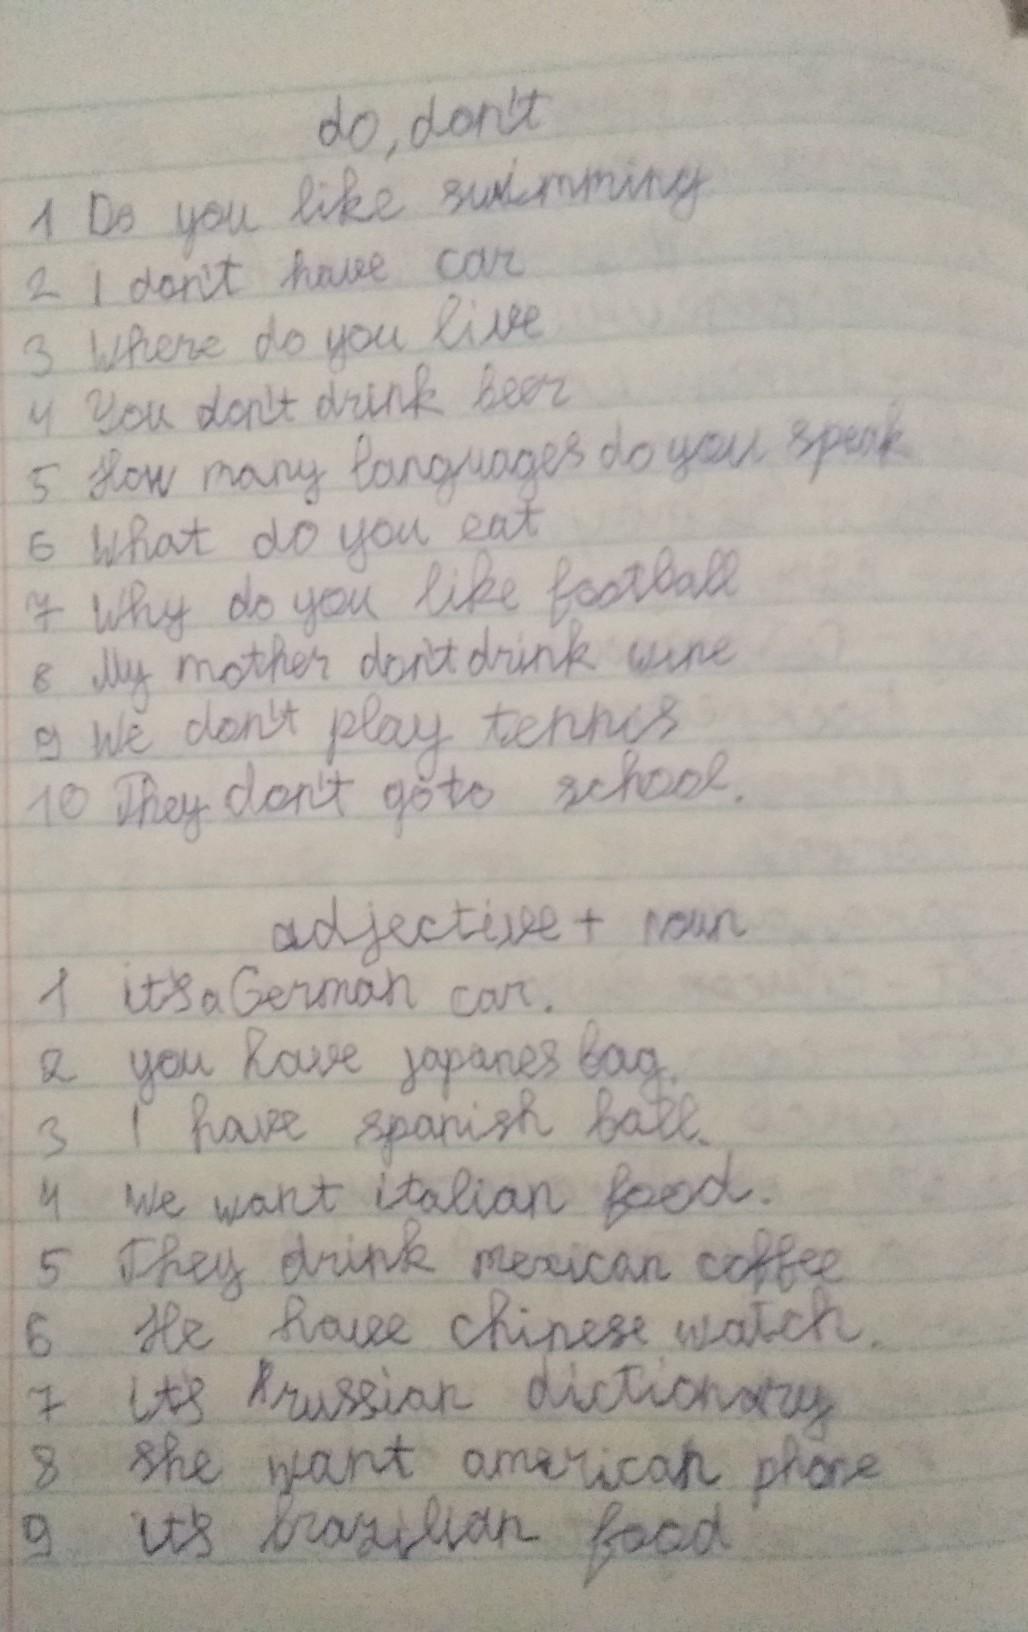 do, don't
1 Do you like swimming
2 I don't have car
3 Where do you live
4 You don't drink beer
5 How many languages do you speak
6 What do you eat
7 Why do you like football
8 My mother don't drink wine
9 We don't play tennis
10 They don't go to school.
adjective + noun
1 it's a German car.
2 you have japanes bag.
3 I have spanish ball.
4 We want italian food.
5 They drink mexican coffee
6 He have chinese watch.
7 it's russian dictionary
8 she want american phone
9 it's brazilian food